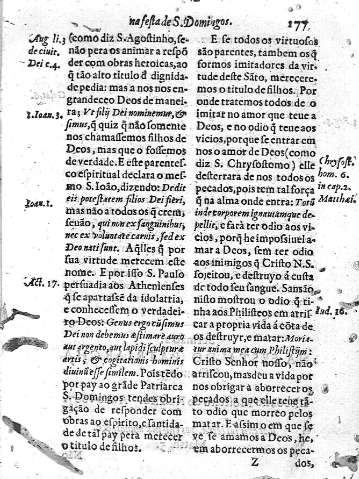 na festa de S. Domingos.
177
Aug li.3
de ciuit.
Dei c.4.
1.Ioan.3.
Ioan.1.
Act. 17.
(como diz S. Agostinho, se-
não pera os animar a respõ
der com obras heroicas, ao
q̃ tão alto titulo & dignida-
de pedia: mas a nos nos en-
grandeceo Deos de manei-
ra; Vt filij Dei nominemur, &
simus, q̃ quiz q̃ não somente
nos chamassemos filhos de
Deos, mas que o fossemos
de verdade. E este parentes-
co espiritual declara o mes-
mo S. Ioão, dizendo: Dedit
eis potestatem filios Dei fieri,
mas não a todos os q̃ crem,
senão, qui non ex sanguinibus,
nec ex voluntate carnis, sed ex
Deo nati sunt. Aq̃lles q̃ por
sua virtude merecem este
nome. E por isso S. Paulo
persuadia aos Athenienses
q̃ se apartassẽ da idolatria,
e conhecessem o verdadei-
ro Deos: Genus ergo cũ simus
Dei non debemus æstimare auro
aut argento, aut lapidi sculpturæ
artis, & cogitationis hominis
diuinũ esse similem. Pois tẽdo
por pay ao grãde Patriarca
S. Domingos tendes obri-
gação de responder com
obras ao espirito, e santida-
de de tal pay pera merecer
o titulo de filhos.
E se todos os virtuosos
são parentes, tambem os q̃
formos imitadores da vir-
tude deste Sãto, merecere-
mos o titulo de filhos. Por
onde tratemos todos de o
imitar no amor que teue a
Deos, e no odio q̃ teue aos
vicios, porque se entrar em
nos o amor de Deos (como
diz S. Chrysostomo) elle
desterrara de nos todos os
pecados, pois tem tal força
q̃ na alma onde entra:
in de corporem ignauiamque de-
pellit, e fará ter odio aos vi-
cios, porq̃ he impossiuel a-
mar a Deos, sem ter odio
aos inimigos q̃ Cristo N.S.
sojeitou, e destruyo á custa
de todo seu sangue. Sansão
nisto mostrou o odio q̃ ti-
nha aos Philisteos em arris-
car a propria vida á cota de
os destruyr, e matar: Moria-
tur anima mea cum Philistijm:
Cristo Senhor nosso, não
arriscou, mas deu a vida por
nos obrigar a aborrecer os
pecados a que elle teue tã-
to odio que morreo pelos
matar. E assim o em que se
ve se amamos a Deos, he,
em aborrecermos os peca-
Chrysost.
hom. 6.
in cap.2.
Matthæi.
Iud. 16.
Z
dos,